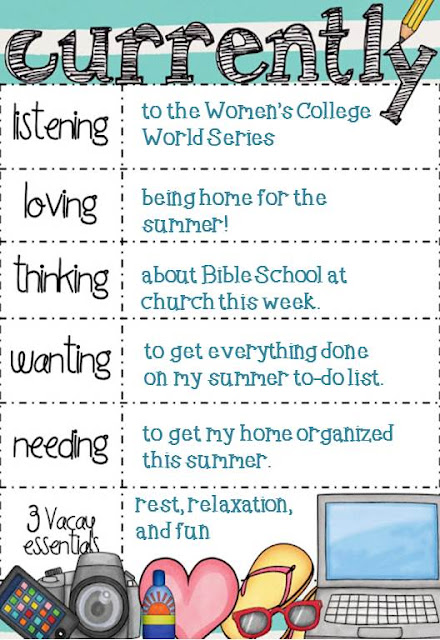 currently
listening
to the Women's College
World Series
loving
being home for the
summer!
thinking
about Bible School at
church this week.
wanting
to get everything done
on my summer to-do list.
needing
to get my home organized
this summer.
3 Vacay
essentials
rest, relaxation,
and fun